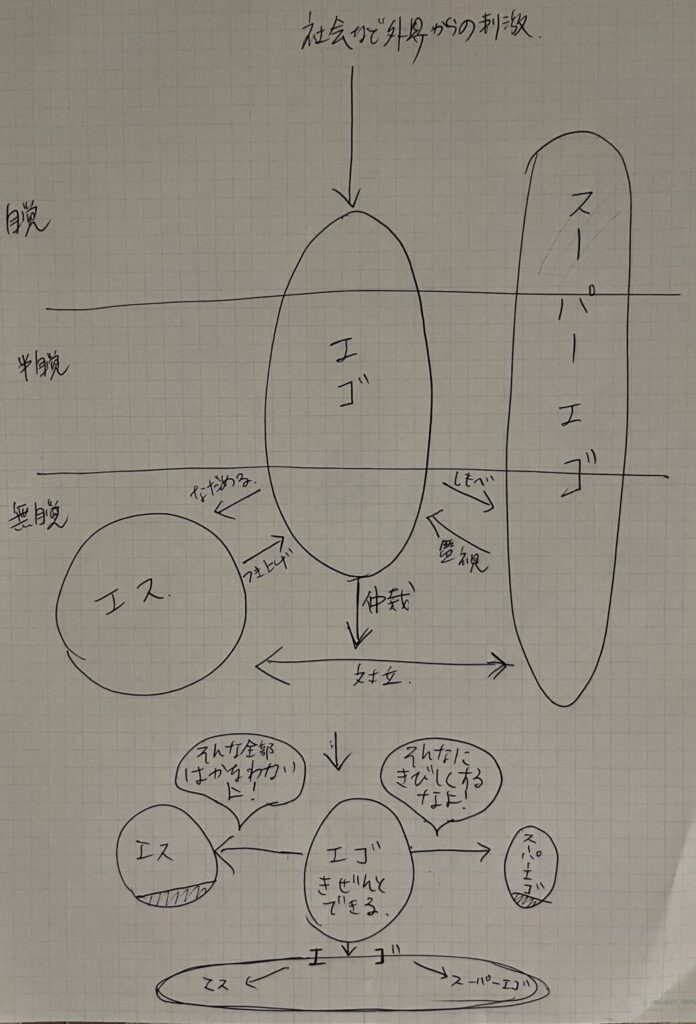 社会など外界からの刺激.
自覚
スーパーエゴ
半自覚
エゴ
無自覚
なだめる.
しもべ
エス.
つき上げ
監視
仲裁
対立.
そんな全部
はかなわない
よ!
そんなに
きびしくする
なよ!
エス
エゴ
きぜんと
できる.
スーパーエゴ
エゴ
エス
スーパーエゴ